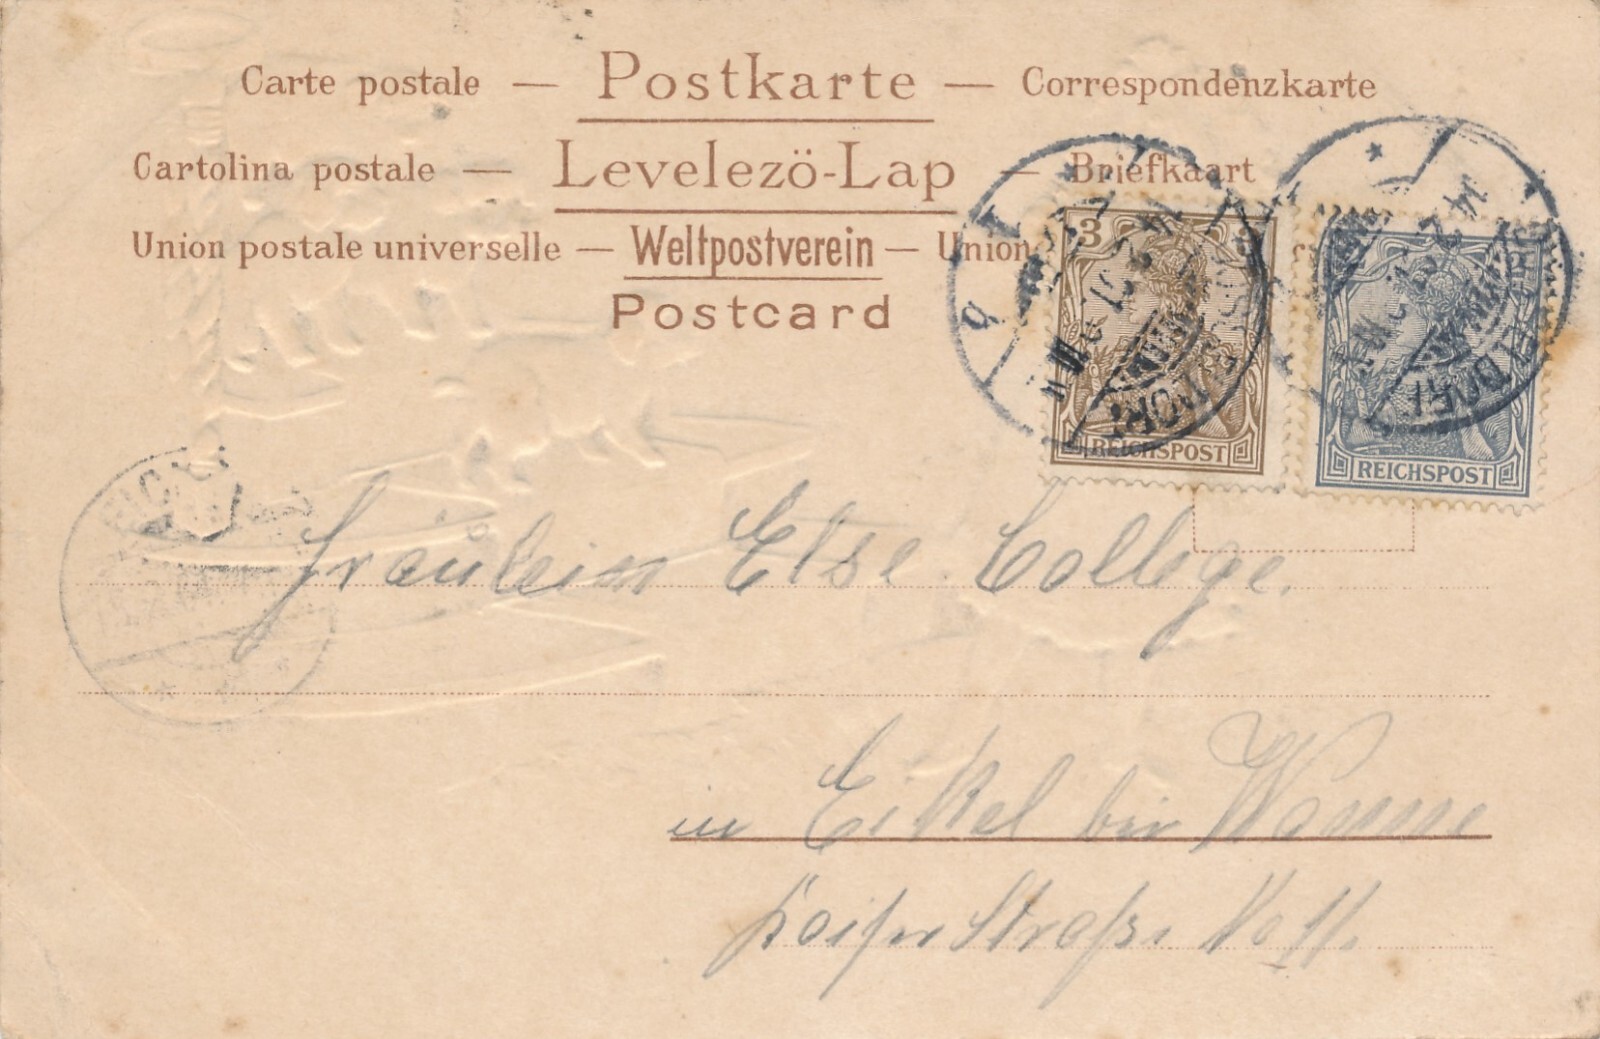 Carte postale — Postkarte — Correspondenzkarte
Cartolina postale — Levelezö-Lap — Briefkaart
Union postale universelle — Weltpostverein — Union
Postcard
3
REICHSPOST
REICHSPOST
Fräulein Else College.
in Eikel bei Wanne
Kaiser Straße No 11.